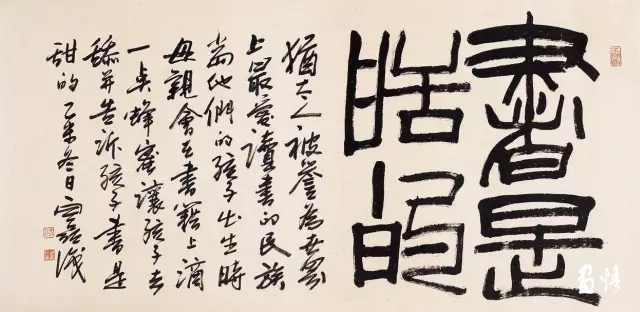 書是
甜的
猶太人被譽為世界
上最愛讀書的民族
當他們的孩子出生時
母親會在書籍上滴
一点蜂蜜讓孩子去
舔并告訴孩子書是
甜的乙未冬日識